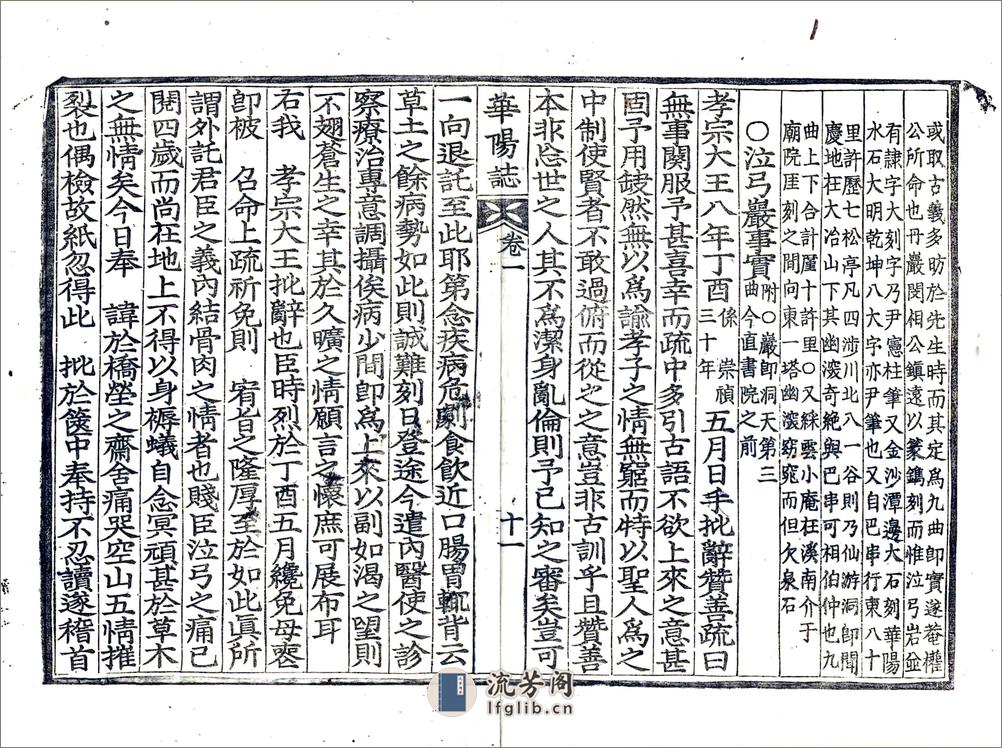 或取古義多昉於先生時而其定爲九曲卽實遂菴權
公所命也丹巖閔相公鎭遠以篆鐫刻而惟泣弓岩並
有隷字大刻字乃尹憲柱筆又金沙潭邊大石刻華陽
水石大明乾坤八大字亦尹筆也又自巴串行東八十
里許歷七松亭凡四涉川北八一谷則乃仙游洞卽聞
慶地在大冶山下其幽深奇絶與巴串可相伯仲也九
曲上下合計廑十許里〇又綵雲小庵在溪南介于
廟院厓刻之間向東一塔幽深窈窕而但欠泉石
〇泣弓巖事實附〇巖卽洞天第三曲今直書院之前
孝宗大王八年丁酉係崇禎三十年五月日手批辭贊善疏曰
無事關服予甚喜幸而疏中多引古語不欲上來之意甚
固予用缺然無以爲諭孝子之情無窮而特以聖人爲之
中制使賢者不敢過俯而從之之意豈非古訓乎且贊善
本非忘世之人其不爲潔身亂倫則予已知之審矣豈可
華陽誌 卷一 十一
一向退託至此耶第念疾病危劇食飮近口腸胃輒背云
草土之餘病勢如此則誠難刻日登途今遣內醫使之診
察療治專意調攝俟病少間卽爲上來以副如渴之望則
不翅蒼生之幸其於久曠之情願言之懷庶可展布耳
右我 孝宗大王批辭也臣時烈於丁酉五月纔免母喪
卽被 召命上疏祈免則 宥旨之隆厚至於如此眞所
謂外託君臣之義內結骨肉之情者也賤臣泣弓之痛已
閱四歲而尚在地上不得以身褥蟻自念冥頑甚於草木
之無情矣今日奉 諱於橋塋之齋舍痛哭空山五情摧
裂也偶檢故紙忽得此 批於篋中奉持不忍讀遂稽首
流芳阁
lfglib.cn